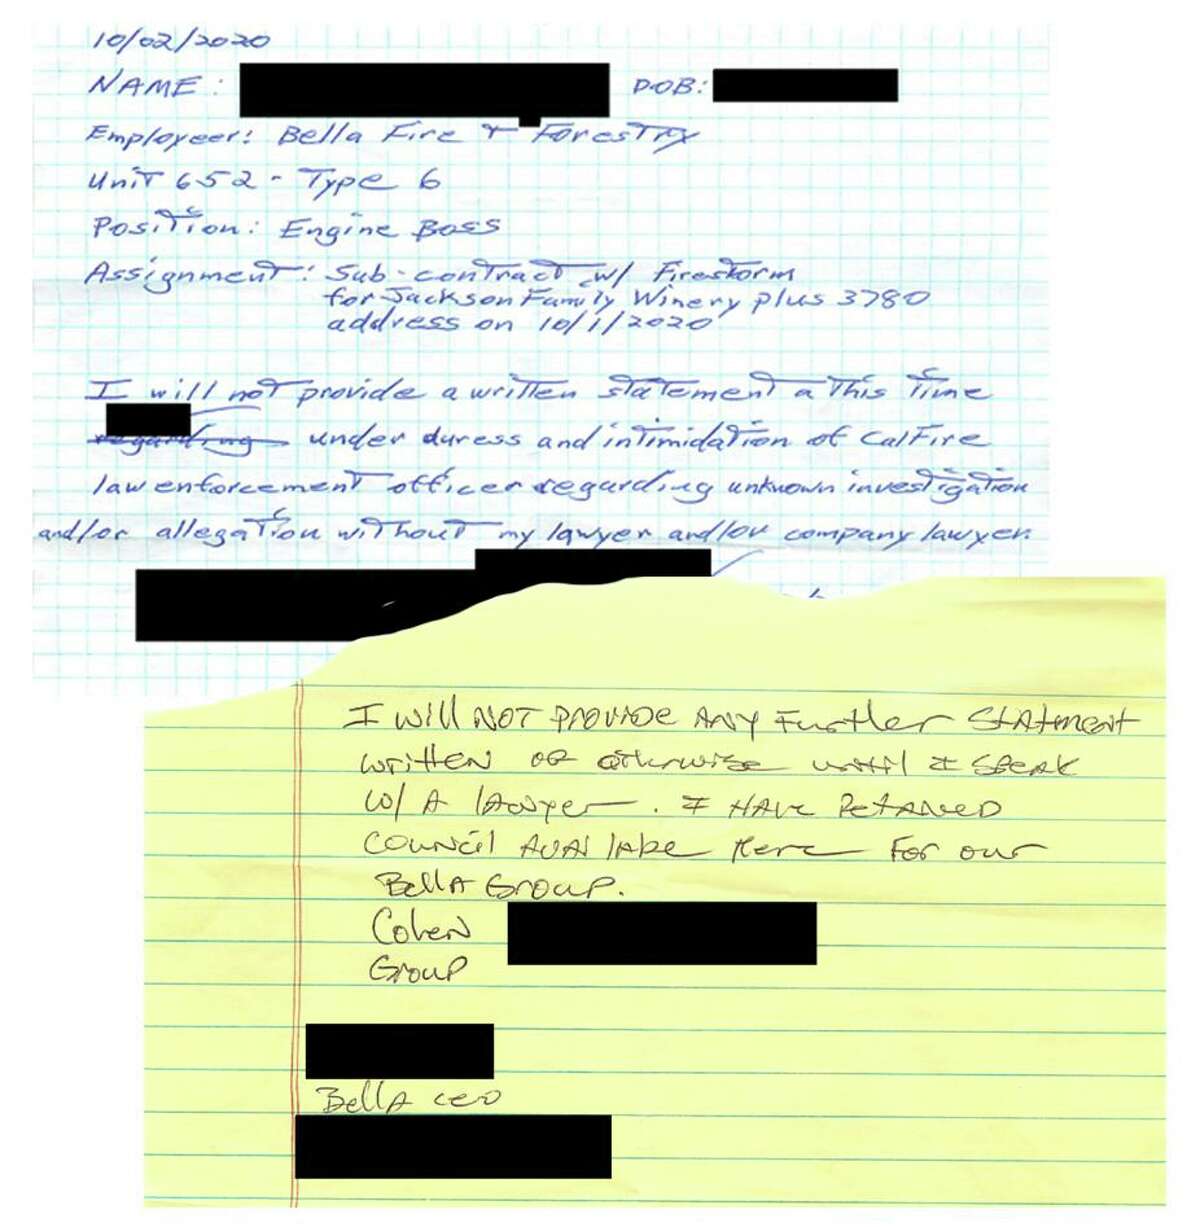 10/02/2020
NAME: DOB:
Employeer: Bella Fire & Forestry
Unit 652 - Type 6
Position: Engine Boss
Assignment: Sub-contract w/ Firestorm
for Jackson Family Winery plus 3780
address on 10/1/2020
I will not provide a written statement a this time
regarding under duress and intimidation of CalFire
law enforcement officer regarding unknown investigation
and/or allegation without my lawyer and/or company lawyer.
I Will NOT PROVIDE ANY Further StAtment
written or otherwise until I SPEAK
W/ A lAwyer. I HAVE RetAneD
COUNCil AVAilAble Here For our
BellA Group.
Cohen
Group
BellA CEO